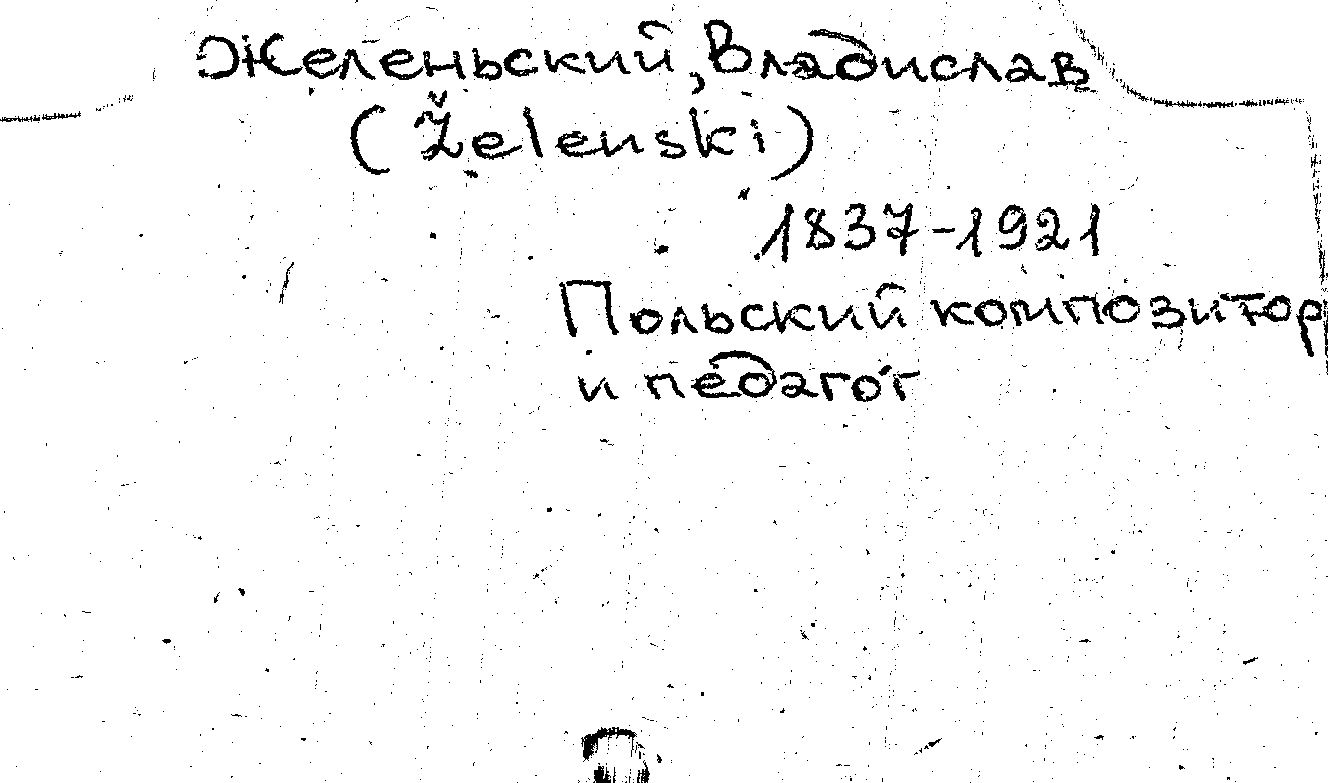 Желеньский, Владислав
(Želenski)
1837-1921
Польский композитор
и педагог